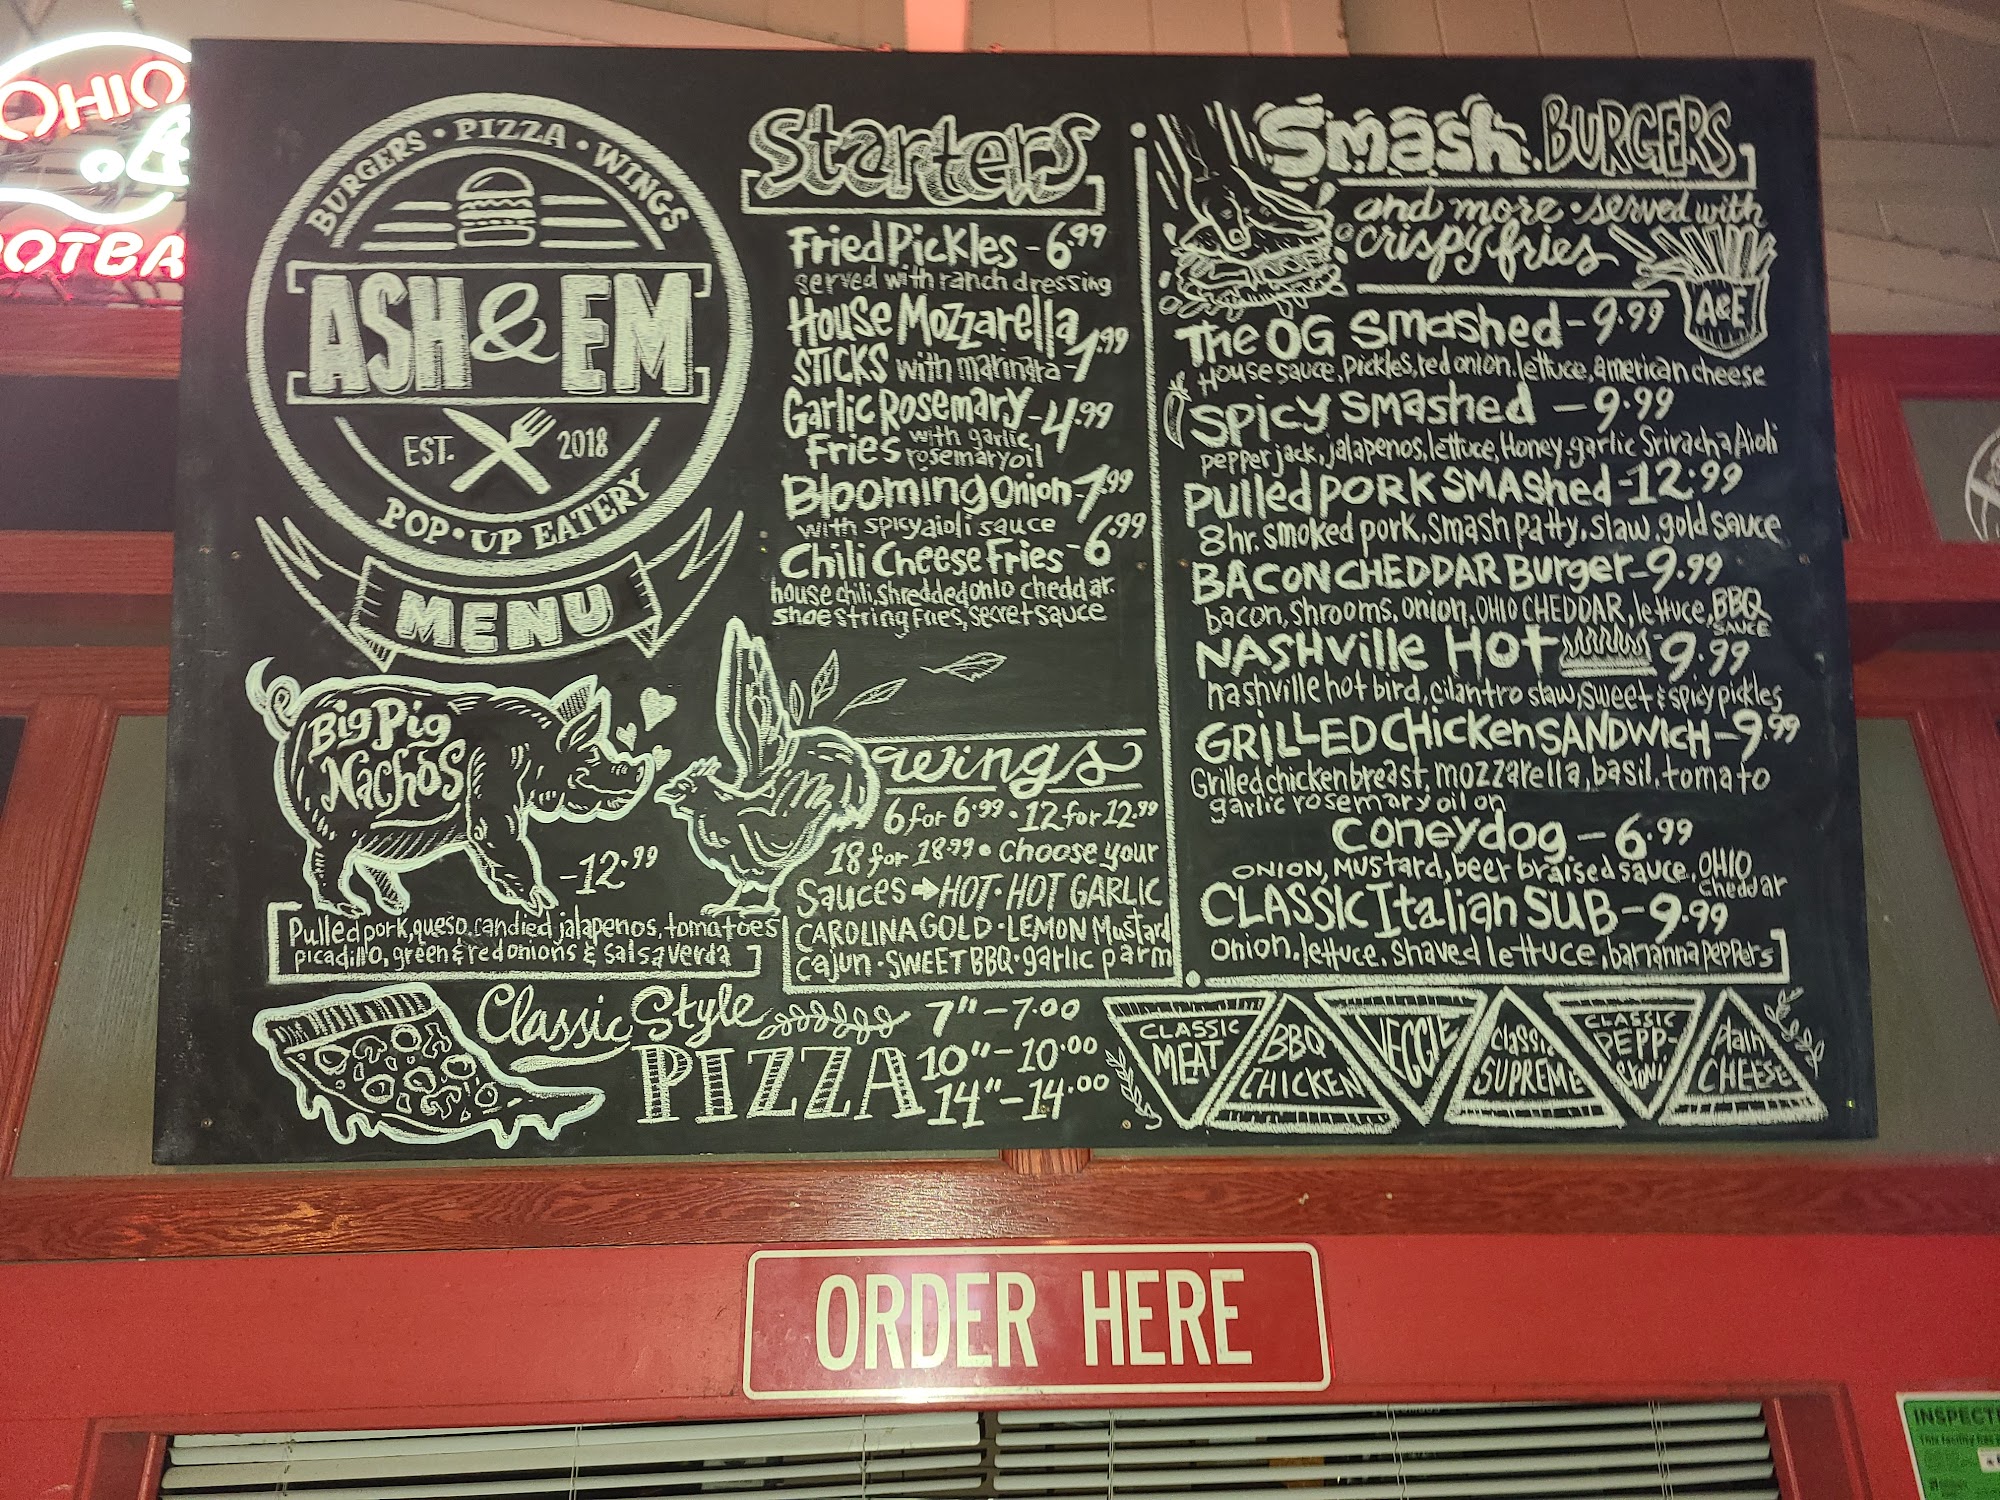 OHIO
OOTBA
BURGERS • PIZZA • WINGS
ASH & EM
EST. 2018
POP • UP EATERY
MENU
Starters
Fried Pickles - 6.99
served with ranch dressing
House Mozzarella
STICKS with marinara - 7.99
Garlic Rosemary - 4.99
Fries with garlic
rosemary oil
Blooming Onion - 7.99
with spicy aioli sauce
Chili Cheese Fries - 6.99
house chili, shredded ohio cheddar.
shoe string fries, secret sauce
Big Pig
Nachos
- 12.99
Pulled pork, queso, candied jalapenos, tomatoes
picadillo, green & red onions & salsa verda
wings
6 for 6.99 • 12 for 12.99
18 for 18.99 • Choose your
Sauces → HOT • HOT GARLIC
CAROLINA GOLD • LEMON Mustard
Cajun • SWEET BBQ • garlic parm
Smash BURGERS
and more • served with
crispy fries
A&E
The OG Smashed - 9.99
House sauce, pickles, red onion, lettuce, american cheese
Spicy Smashed - 9.99
pepper jack, jalapenos, lettuce, Honey garlic Sriracha Aioli
Pulled PORK SMAShed - 12.99
8hr. smoked pork, smash patty, slaw, gold sauce
BACON CHEDDAR Burger - 9.99
bacon, shrooms, onion, OHIO CHEDDAR, lettuce, BBQ
SAUCE
NASHville Hot - 9.99
nashville hot bird, cilantro slaw, sweet & spicy pickles
GRILLED Chicken SANDWich - 9.99
Grilled chicken breast, mozzarella, basil, tomato
garlic rosemary oil on
Coneydog - 6.99
ONION, Mustard, beer braised sauce, OHIO
Cheddar
CLASSIC Italian SUB - 9.99
onion, lettuce, shaved lettuce, bananna peppers
Classic Style
PIZZA
7" - 7.00
10" - 10.00
14" - 14.00
CLASSIC
MEAT
BBQ
CHICKEN
VEGGIE
Classic
SUPREME
CLASSIC
PEPP-
Plain
CHEESE
ORDER HERE